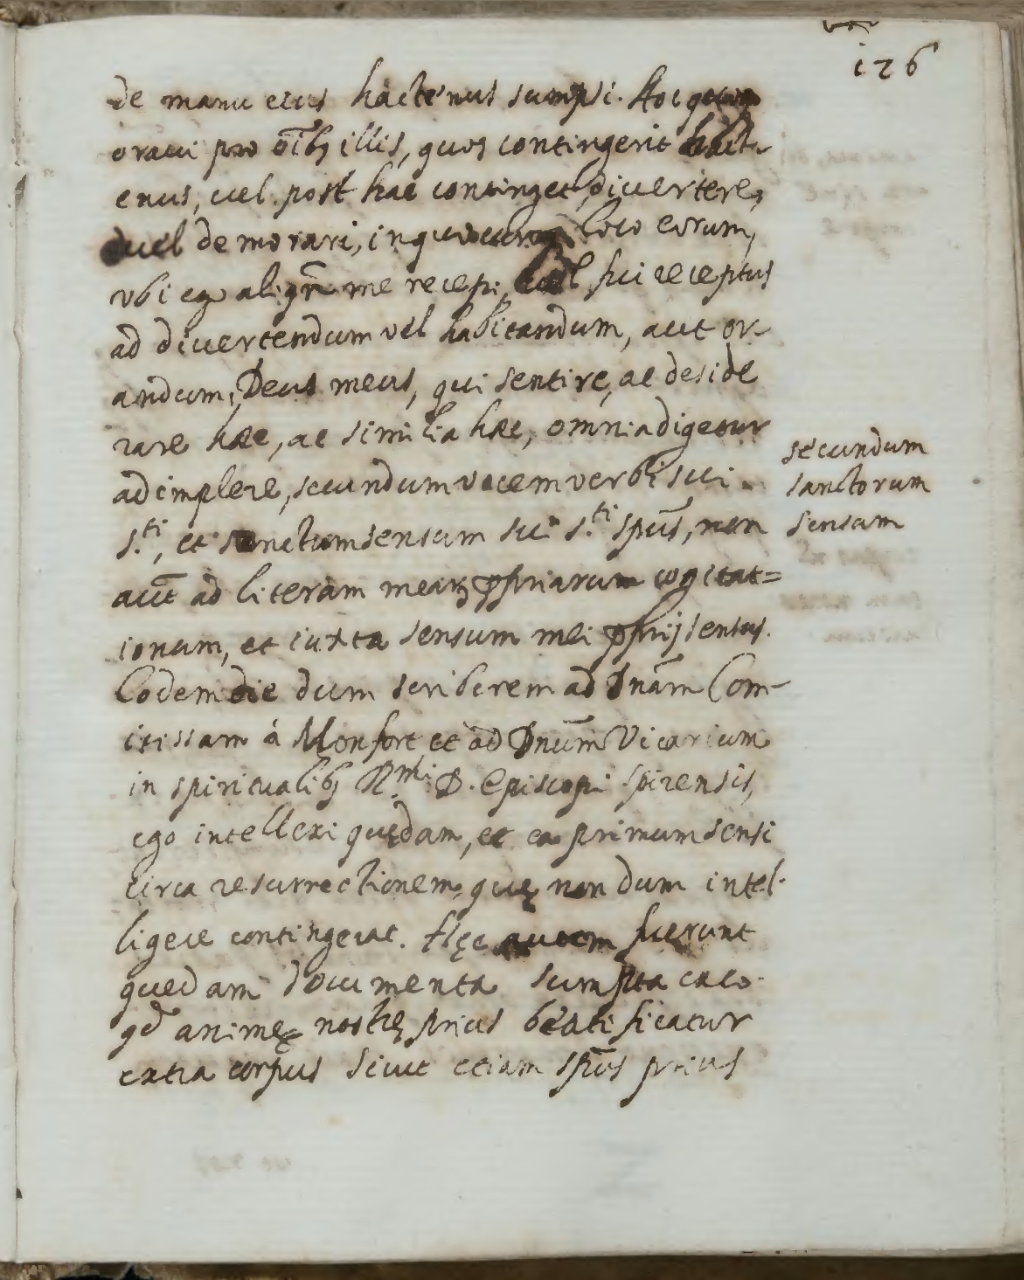 126
de manu eius hactenus sumpsi. Hoc quoq
oraui pro oībȝ illis, quos contingerit hact
enus, uel post hac continget, diuertere,
uel demorari, in quocunq loco eorum,
vbi ego aliqn̄ me recepi, uel fui receptus
ad diuertendum vel habitandum, aut or-
andum, Deus meus, qui sentire, ac deside
rare hæc, ac similia hæc, omnia digetur
adimplere, secundum vocem verbi sui
s.ti, et sanctum sensum sui s.ti spūs, non
aut̄ ad literam mearȝ ꝓpriarum cogitat=
ionum, et iuxta sensum mei ꝓprij sensus.
Eodem die dum scriberem ad Dnām Com-
itissam à Monfort et ad Dnūm Vicarium
in spiritualibȝ R.mi D. Episcopi Spirensis,
ego intellexi quędam, et ea primum sensi
circa resurrectionem, quę nondum intel-
ligere contingerat. Hęc autem fuerunt
quedam documenta sumpta
qd̄ animę nostrę prius beatificatur
extra corpus sicut etiam spūs prius
secundum
sanctorum
sensum